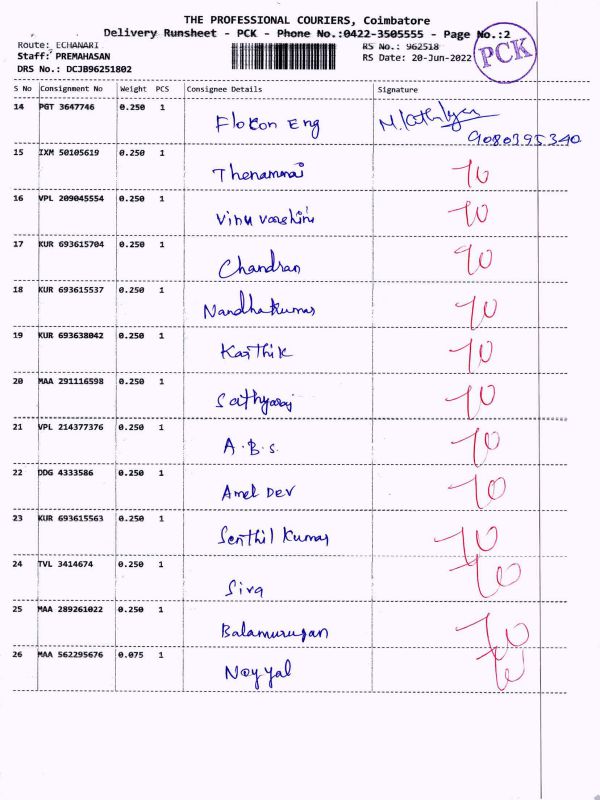 THE PROFESSIONAL COURIERS, Coimbatore
Delivery Runsheet - PCK - Phone No.:0422-3505555 - Page No.:2
Route: ECHANARI
Staff: PREMAHASAN
DRS No.: DCJB96251802
RS No.: 962518
RS Date: 20-Jun-2022
PCK
S No Consignment No Weight PCS Consignee Details Signature
14 PGT 3647746 0.250 1 Flokon Eng
9080395340
15 IXM 50105619 0.250 1 Thenammai
16 VPL 209045554 0.250 1 Vinu varshini
17 KUR 693615704 0.250 1 Chandran
18 KUR 693615537 0.250 1 Nandhakumar
19 KUR 693638042 0.250 1 Karthik
20 MAA 291116598 0.250 1 Sathyaraj
21 VPL 214377376 0.250 1 A.B.S.
22 DDG 4333586 0.250 1 Amel Dev
23 KUR 693615563 0.250 1 Senthil Kumar
24 TVL 3414674 0.250 1 Siva
25 MAA 289261022 0.250 1 Balamurugan
26 MAA 562295676 0.075 1 Noyyal